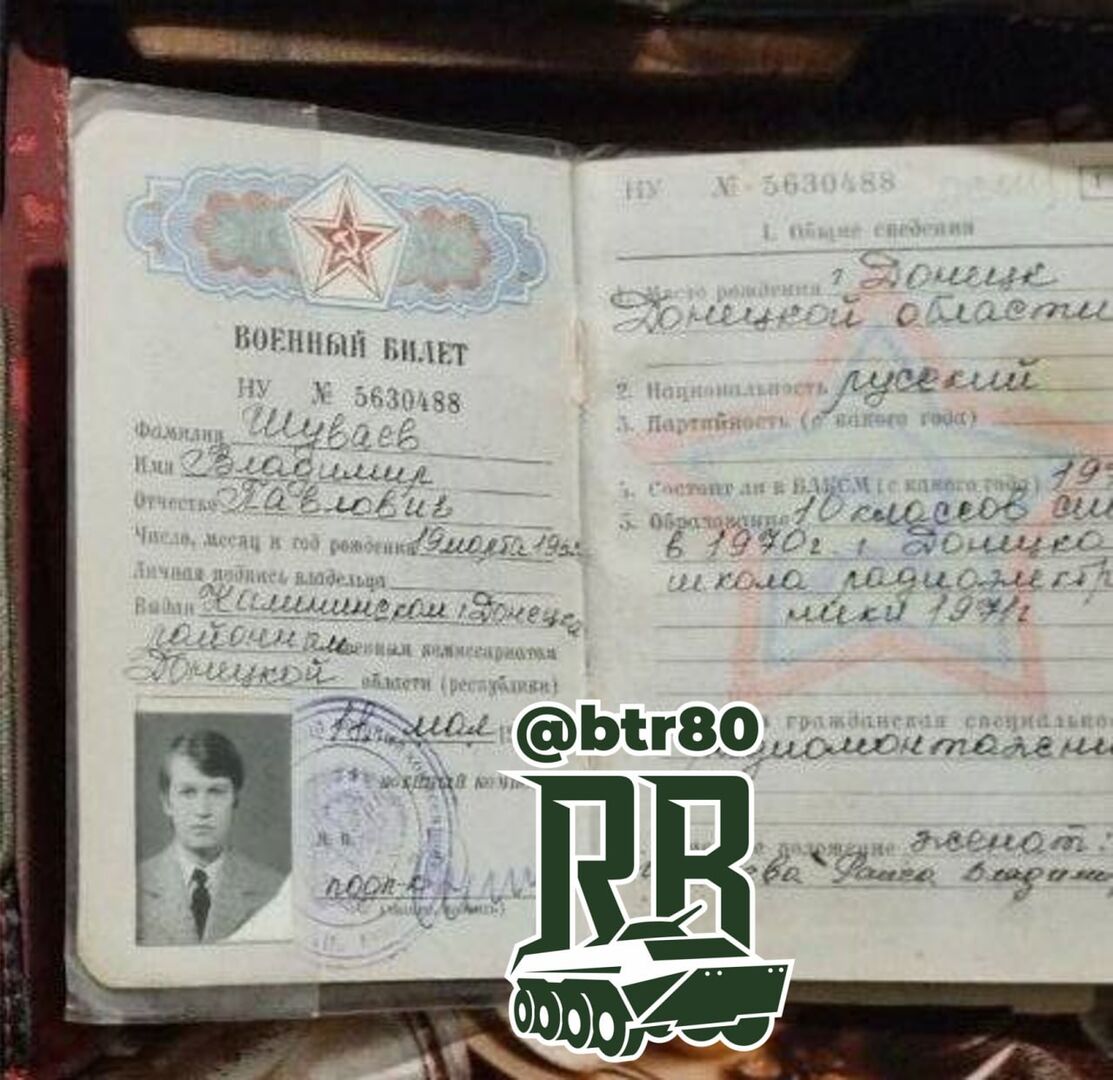 ВОЕННЫЙ БИЛЕТ
НУ № 5630488
Фамилия Шуваев
Имя Владимир
Отчество Павлович
Число, месяц и год рождения 19 марта
Личная подпись владельца
Выдан Калининском г. Донецка
районным военным комиссариатом
Донецкой области (республики)
11 мая
М. П.
подп-к
НУ № 5630488
1. Общие сведения
1. Место рождения г Донецк
Донецкой области
2. Национальность русский
3. Партийность (с какого года)
4. Состоит ли в ВЛКСМ (с какого года)
5. Образование 10 классов
в 1970г. г. Донецка
школа
1971г
гражданская
женат.
Раиса
@btr80
RB